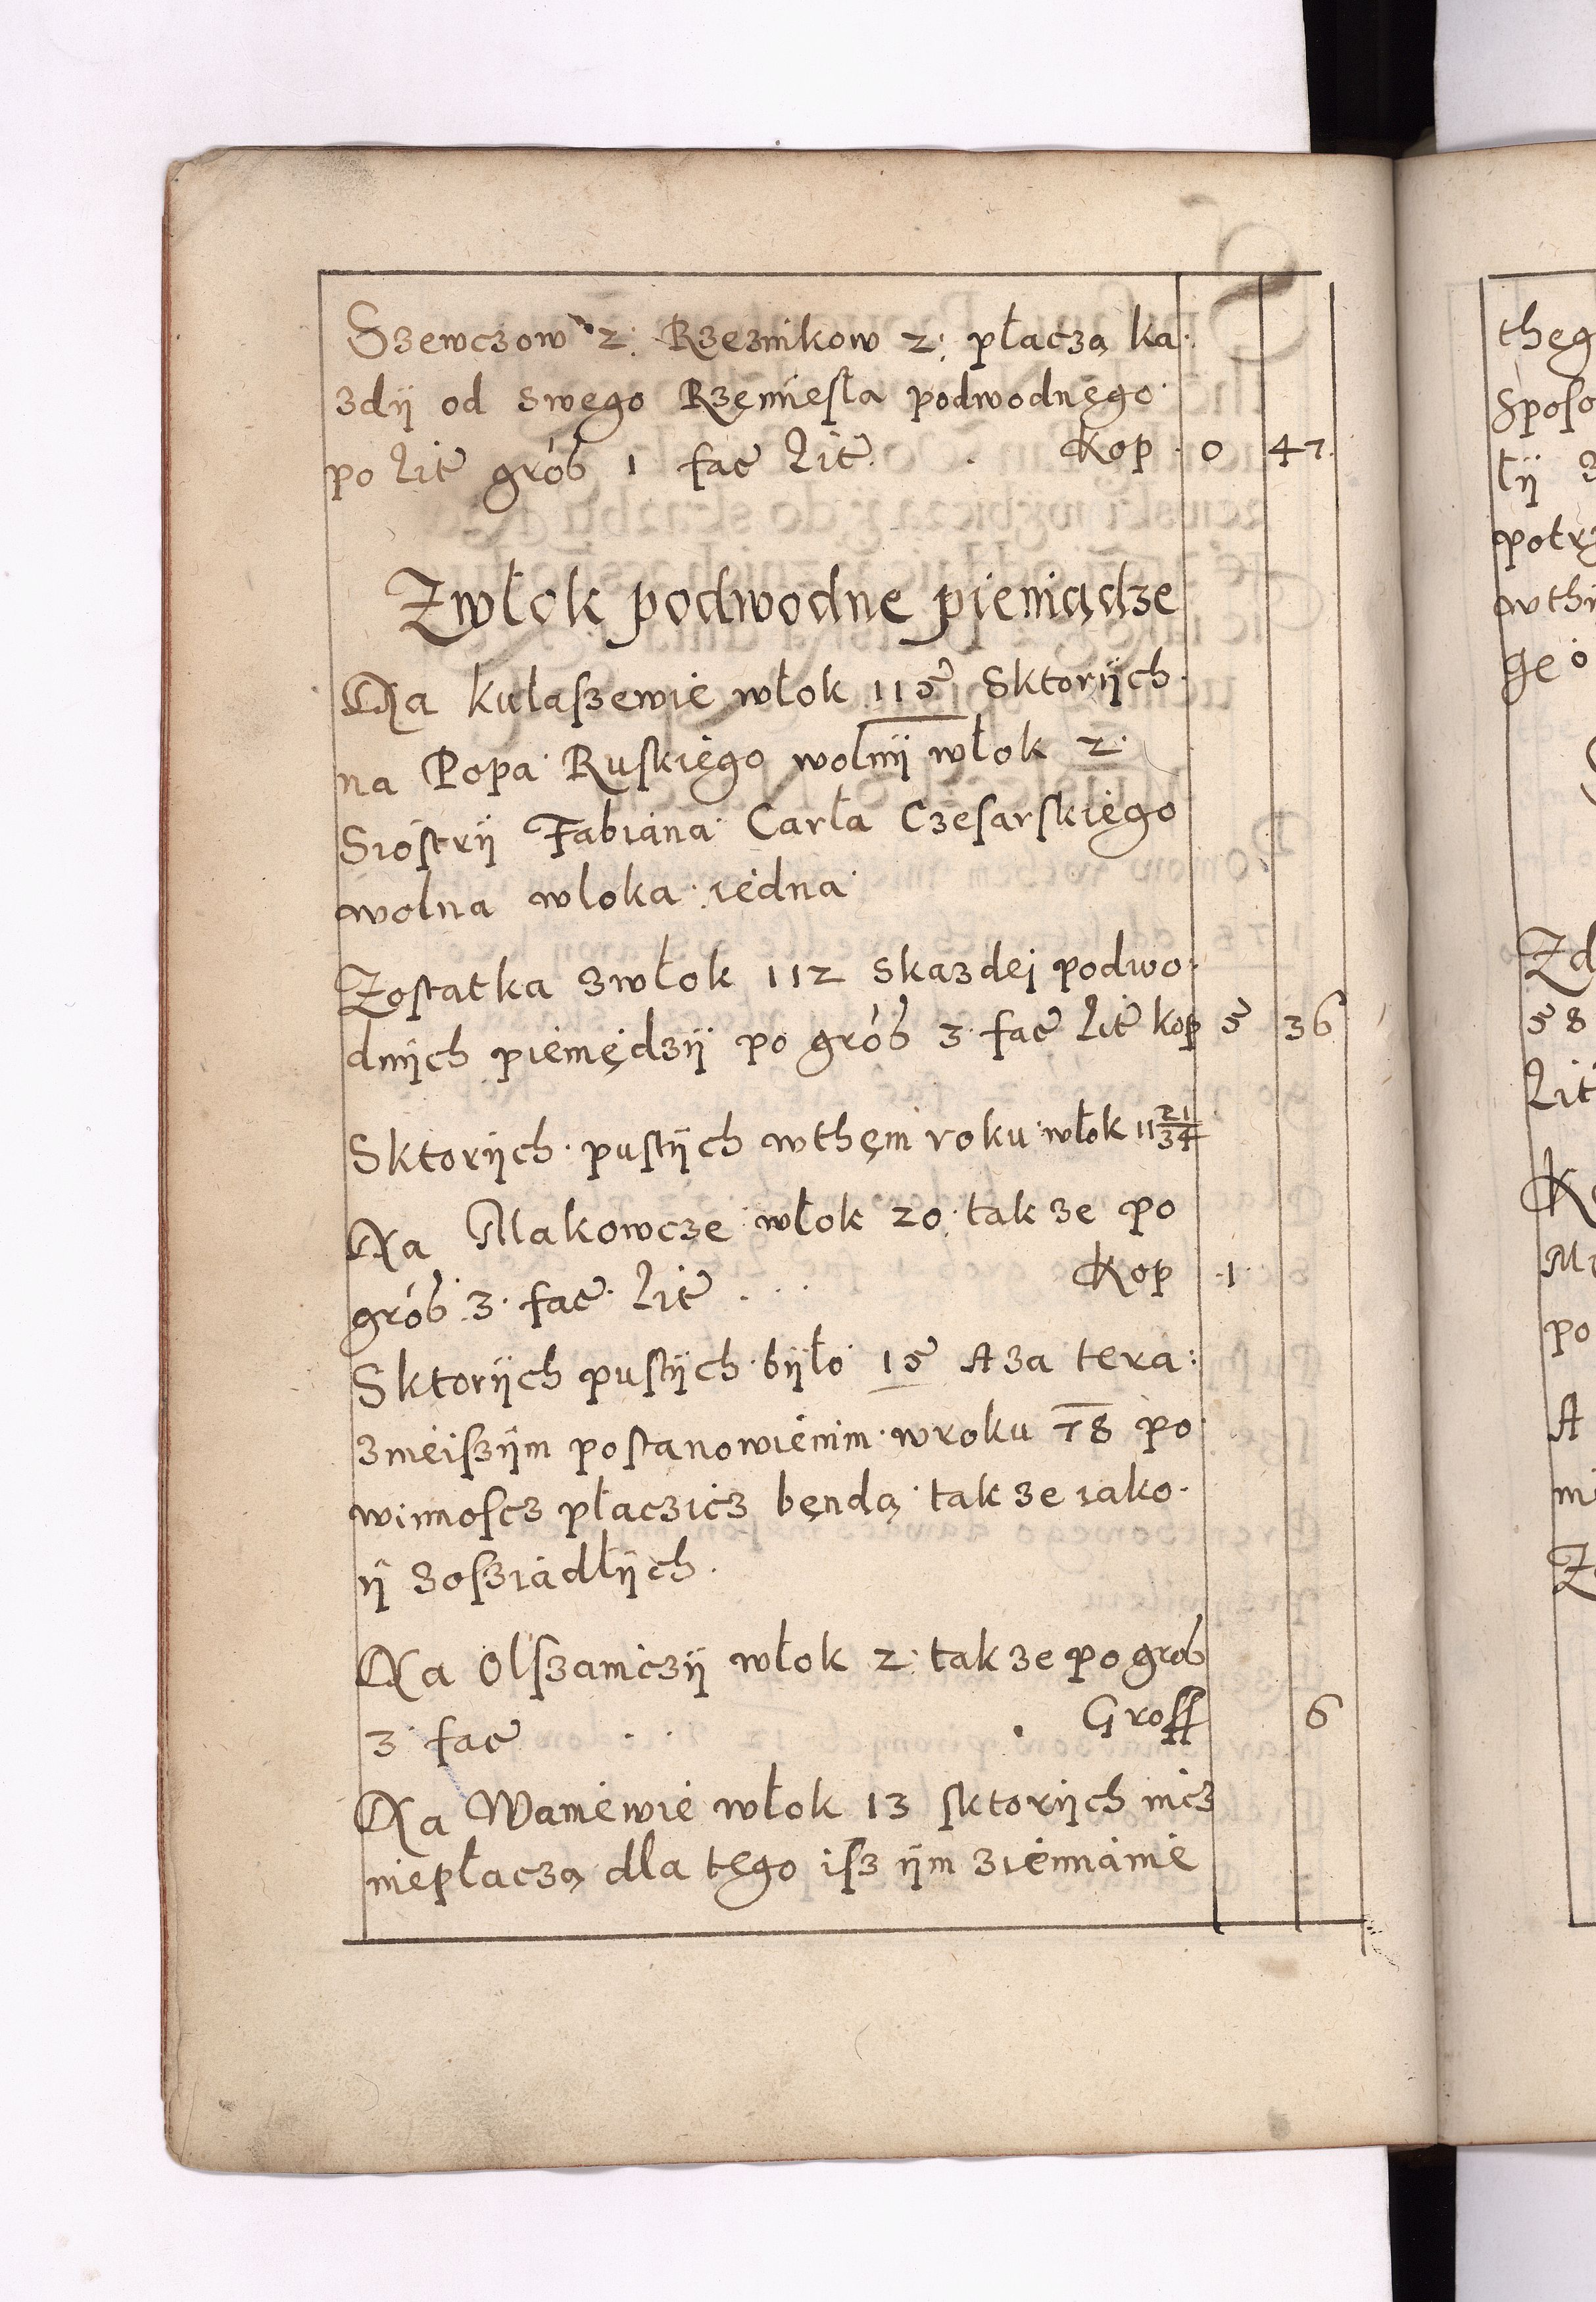 Szewczow 2: Rzeznikow 2: płaczą ka:
zdÿ od swego Rzęmiesła podwodnęgo
po Lit grób 1 fac Lit. Kop 0 47
Zwłok podwodne pieniądze
Na kułaszewie włok 115 Sktorÿch
na Popa Ruskięgo wolnÿ włok 2.
Sióstrÿ Fabiana Carła Czesarskięgo
wolna wloka iedna
Zostatka zwłok 112 skazdei podwo:
dnÿch pieniędzÿ po grób 3 fac Lit kop 5 36
Sktorÿch pustÿch wthęm roku włok 11 21/34
Na Makowcze włok 20 tak ze po
grób 3 fac Lit Kop 1
Sktorÿch pustÿch bÿło 15 A za tera:
znieiszÿm postanowienim wroku 78 po
winnoscz płaczicz będą tak ze iako
ÿ zosziadłÿch.
Na Olszaniczÿ włok 2: tak ze po grób
3 fac Gross 6
Na Waniewie włok 13 sktorÿch nicz
niepłaczą dla tego isz ÿm ziemianie
theg
Sposo
łÿ
potrz
wthi
ge
Zd
58
Lit
po
A